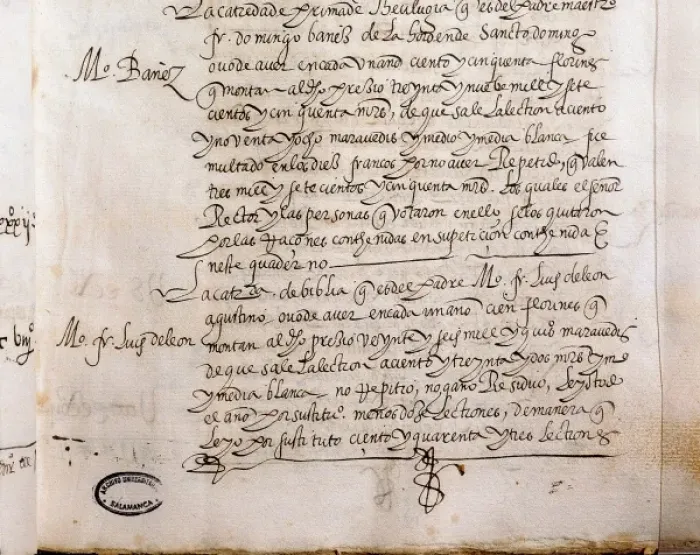 La catreda de prima de theulugia q es del padre maestro
fr. domingo bañes de la horden de sancto domingo
M.º Bañez
ovo de aver en cada un año ciento y cinquenta florines
q montan al dho presçio treynta y nuebe mill y sete
cientos y cinquenta mrs, de que sale la lection a ciento
y noventa y ocho maravedis y medio y media blanca fue
multado en los diez francos por no aver Repetido, q valen
tres mill y setecientos y cinquenta mrs. los quales el señor
Rector y las personas q votaron en ello, se los quitaron
por las raçones conthenidas en su petiçion conthenida E
neste quaderno
La catra. de biblia q es del padre M.º fr. luis de leon
agustino ovo de aver en cada un año cien florines q
M.º fr. luis de leon
montan al dho presçio veynte y seis mill y qui.os maravedis
de que sale la lection a ciento y treynta y dos mrs y me
y media blanca no repitio, no gaño Residuo, leyose
el año por sustituto. menos doze lectiones, de manera q
leyo por sustituto ciento y quarenta y tres lectiones
ARCHIVO UNIVERSITARIO
SALAMANCA